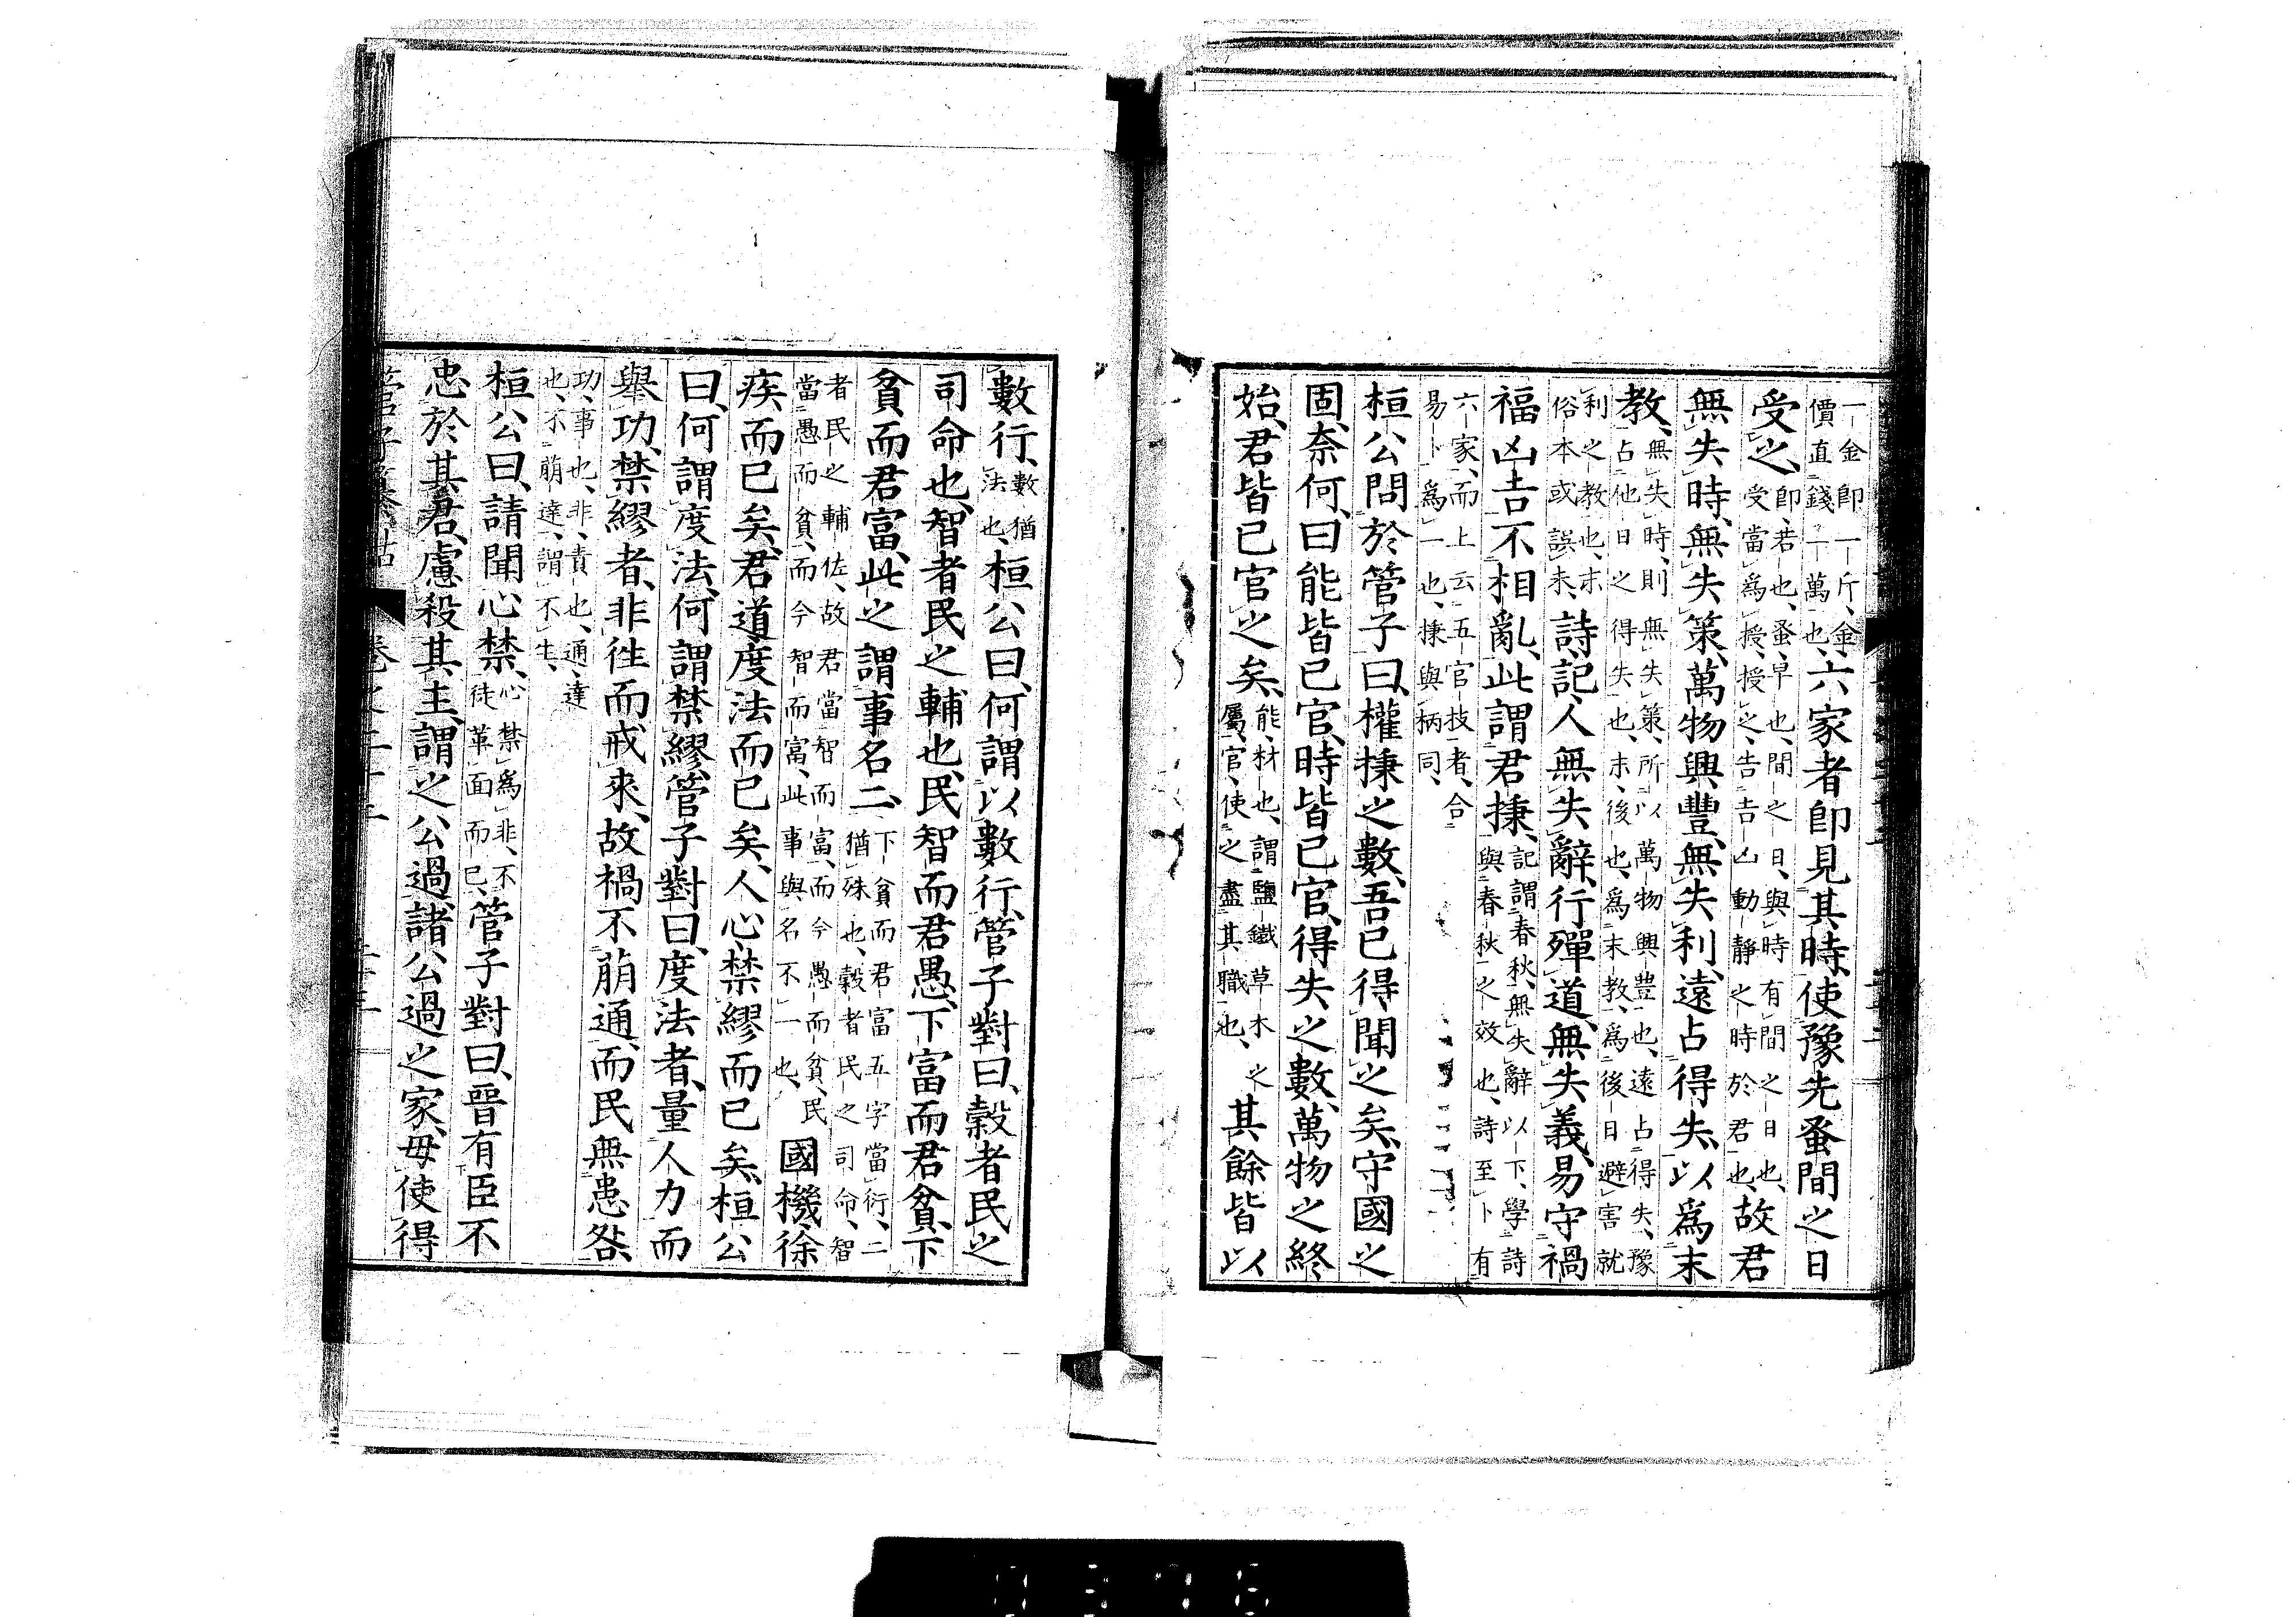 一金卽一斤、金
價直錢一萬也、六家者卽見其時、使豫先蚤間之日
受之、卽、若也、蚤、早也、間之日、與時有間之日也、
受當爲授、授之、告吉凶動靜之時於君也、故君
無失時、無失策、萬物興豐、無失利、遠占得失、以爲末
教、無失時、則無失策、所以萬物興豊也、遠占得失、豫
占他日之得失也、末、後也、爲末教、爲後日避害就
利之教也、末
俗本或誤未、詩記人無失辭、行殫道無失義、易守禍
福凶吉不相亂、此謂君棅、記謂春秋、無失辭以下、學詩
與春秋之效也、詩至卜有
六家、而上云五官技者、合
易卜爲一也、棅與柄同、
桓公問於管子曰、權棅之數、吾已得聞之矣、守國之
固奈何、曰能皆已官、時皆已官、得失之數、萬物之終
始、君皆已官之矣、能、材也、謂鹽鐵草木之
屬、官、使之盡其職也、其餘皆以
數行、數猶
法也、桓公曰、何謂以數行、管子對曰、穀者民之
司命也、智者民之輔也、民智而君愚、下富而君貧、下
貧而君富、此之謂事名二、下貧而君富五字當衍、二
猶殊也、穀者民之司命、智
者民之輔佐、故君當智而富、而今愚而貧、民
當愚而貧、而今智而富、此事與名不一也、國機、徐
疾而已矣、君道度法而已矣、人心禁繆而已矣、桓公
曰、何謂度法、何謂禁繆、管子對曰、度法者、量人力而
舉功、禁繆者、非往而戒來、故禍不萠通、而民無患咎、
功、事也、非、責也、通、達
也、不萠達、謂不生、
桓公曰、請聞心禁、心禁爲非、不
徒革面而已、管子對曰、晉有臣不
忠於其君、慮殺其主、謂之公過、諸公過之家、毋使得
管子纂詁　卷之二十二